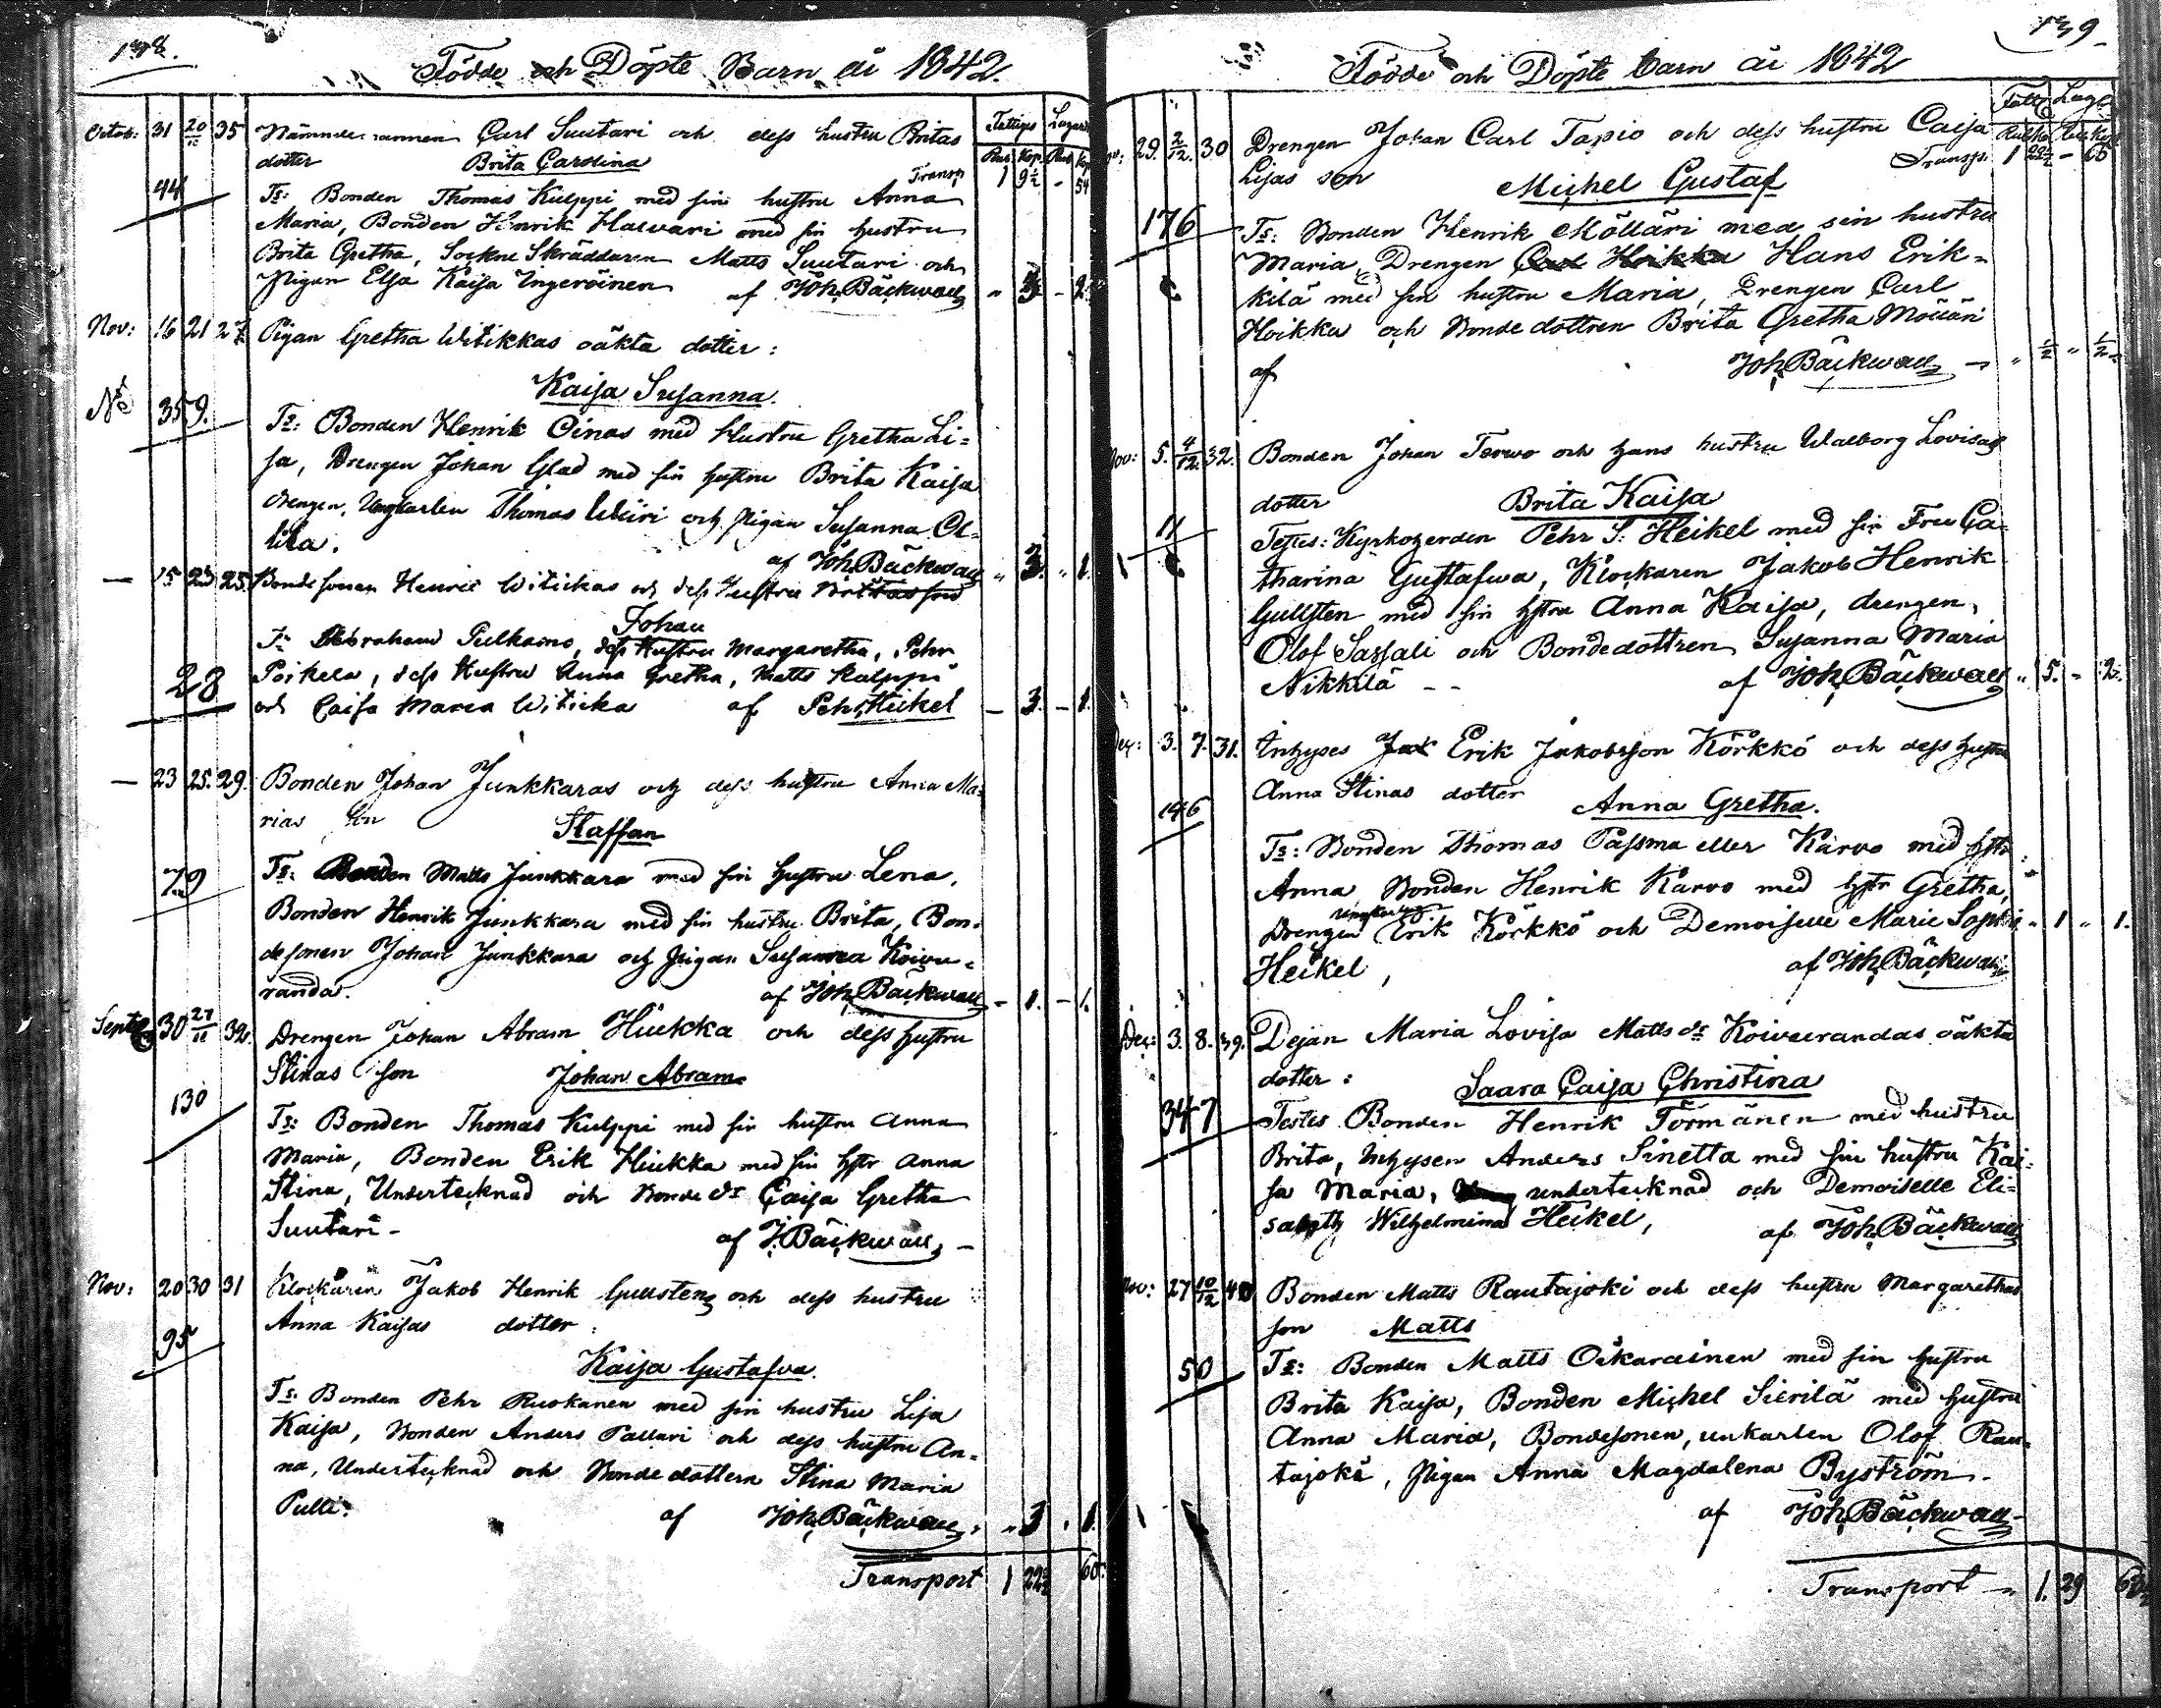 138.
Födde och Döpte Barn år 1842.
Fattiges Lazar.
Rub Kop Rub Kop
Octob: 31 20/11 35 Nämndemannen Carl Suutari och dess hustru Britas
dotter Brita Carolina
Transp 1 9½ - 54
44 Ts: Bonden Thomas Kulppi med sin hustru Anna
Maria, Bonden Henrik Halvari med sin hustru
Brita Gretha, Sockne Skräddaren Matts Suutari och
Pigan Elsa Kaisa Ingeröinen af Joh. Bäckwall " 3 - 2
Nov: 16 21 27 Pigan Gretha Witikkas oäkta dotter:
Kaisa Susanna.
No 359. Ts: Bonden Henrik Oinas med Hustru Gretha Li=
sa, Drengen Johan Glad med sin hustru Brita Kaisa
drengen, Ungkarlen Thomas Wiiri och Pigan Susanna Ol=
lila. af Joh. Bäckwall " 3. " 1.
— 15 23 25. Bondesonen Henric Witickas och dess Hustru Brittas son
Johan
Ts Abraham Pulkamo, dess Hustru Margaretha, Pehr
28 Poikela, dess Hustru Anna Gretha, Matts Kulppi
och Caisa Maria Witicka af Pehr Heikel — 3. — 1.
— 23 25. 29. Bonden Johan Junkkaras och dess hustru Anna Ma=
rias son Staffan
79 Ts: Bonden Matts Junkkara med sin hustru Lena,
Bonden Henrik Junkkara med sin hustru Brita, Bon=
desonen Johan Junkkara och Pigan Susanna Koivu=
randa. af Joh. Bäckwall — 1. — 1.
Septe 30 27/11 32. Drengen Johan Abram Hiukka och dess hustru
Stinas son Johan Abram
130 Ts: Bonden Thomas Kulppi med sin hustru Anna
Maria, Bonden Erik Hiukka med sin hstr Anna
Stina, Undertecknad och Bonde dr Caisa Gretha
Suutari - af J. Bäckwall, —
Nov: 20 30 31 Klockaren Jakob Henrik Gullstens och dess hustru
Anna Kaisas dotter:
95 Kaisa Gustafva.
Ts: Bonden Pehr Ruokanen med sin hustru Lisa
Kaisa, Bonden Anders Pallari och dess hustru An=
na, Undertecknad och Bondedottern Stina Maria
Pulli. af Joh. Bäckwall, " 3 " 1.
Transport 1 22½ 60.
139
Födde och Döpte barn år 1842
Fatt Laz
Rub Ko Rub Kop
29. 2/12. 30 Drengen Johan Carl Tapio och dess hustru Caisa
Transp: 1 22½ - 60
Lisas son Michel Gustaf
176 Ts: Bonden Henrik Möllari med sin hustru
Maria, Drengen Carl Hoikka Hans Erik=
kilä med sin hustru Maria, Drengen Carl
Hoikka och Bondedottren Brita Gretha Möllari
af Joh. Bäckwall — " ½ " ½
Nov: 5. 4/12. 32. Bonden Johan Terwo och hans hustru Walborg Lovisas
dotter Brita Kaisa
11 Testes: Kyrkoherden Pehr J. Heikel med sin Fru Ca=
tharina Gustafwa, Klockaren Jakob Henrik
Gullsten med sin hstru Anna Kaisa, drengen,
Olof Sassali och Bondedottren Susanna Maria
Nikkilä - - af Joh. Bäckwall " 5. - 2.
Dec: 3. 7. 31. Inhyses Jak Erik Jakobsson Körkkö och dess hustru
Anna Stinas dotter Anna Gretha.
146
Ts: Bonden Thomas Passma eller Karvo med hstr
Anna, Bonden Henrik Karvo med hstr Gretha,
ungkarlen
Drengen Erik Körkkö och Demoiselle Marie Sophie " 1 " 1.
Heikel, af Joh. Bäckwall
Dec: 3. 8. 39. Pejan Maria Lovisa Matts dr Koivurandas oäkta
dotter: Saara Caisa Christina
347 Testes Bonden Henrik Törmänen med hustru
Brita, Inhysen Anders Sinetta med sin hustru Kai=
sa Maria, undertecknad och Demoiselle Eli=
sabeth Wilhelmina Heikel, af Joh. Bäckwall
Nov: 27 10/12 40 Bonden Matts Rautajoki och dess hustru Margarethas
son Matts
50 Ts: Bonden Matts Oikarainen med sin hustru
Brita Kaisa, Bonden Michel Sierilä med hustru
Anna Maria, Bondesonen, unkarlen Olof Rau=
tajoki, Pigan Anna Magdalena Byström.
af Joh. Bäckwall
Transport — 1. 29 62½